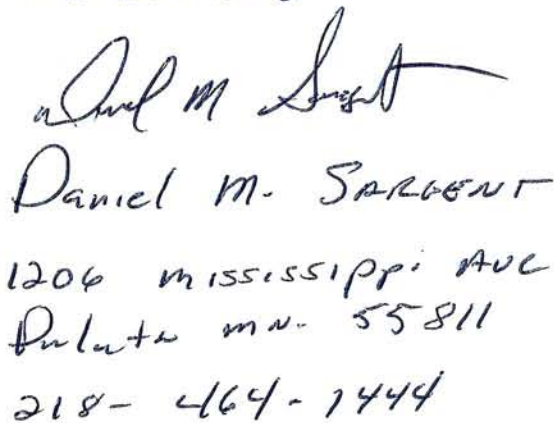 Daniel M Sargent
Daniel M. SARGENT
1206 mississippi Ave
Duluth mn. 55811
218-464-1444